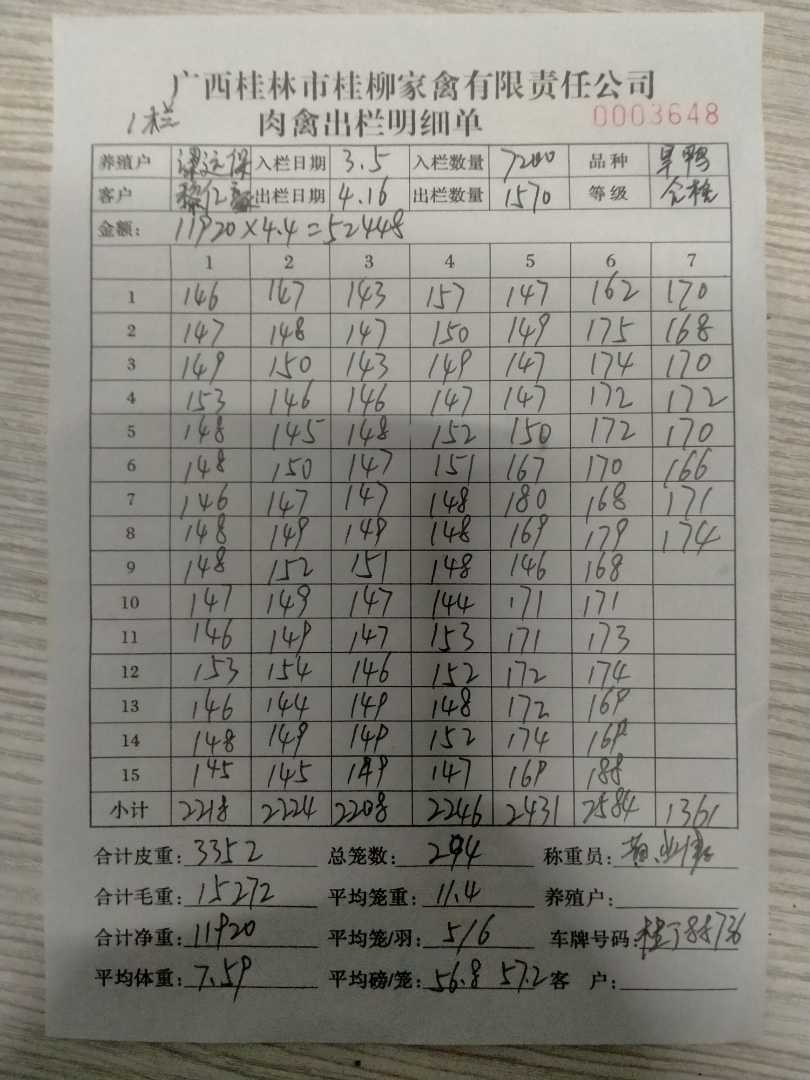 广西桂林市桂柳家禽有限责任公司
1栏 肉禽出栏明细单 0003648
养殖户 谭远保 入栏日期 3.5 入栏数量 7200 品种 旱鸭
客户 出栏日期 4.16 出栏数量 1570 等级 合格
金额: 11920×4.4=52448
1 2 3 4 5 6 7
1 146 147 143 157 147 162 170
2 147 148 147 150 149 175 168
3 149 150 143 149 147 174 170
4 153 146 146 147 147 172 172
5 148 145 148 152 150 172 170
6 148 150 147 151 167 170 166
7 146 147 147 148 180 168 171
8 148 149 149 148 169 179 174
9 148 152 151 148 146 168
10 147 149 147 144 171 171
11 146 149 147 153 171 173
12 153 154 146 152 172 174
13 146 144 149 148 172 169
14 148 149 149 152 174 169
15 145 145 149 147 169 188
小计 2218 2224 2208 2246 2431 2584 1361
合计皮重: 3352 总笼数: 294 称重员:
合计毛重: 15272 平均笼重: 11.4 养殖户:
合计净重: 11920 平均笼/羽: 5/6 车牌号码: 88736
平均体重: 7.59 平均磅/笼: 56.8 57.2 客 户: